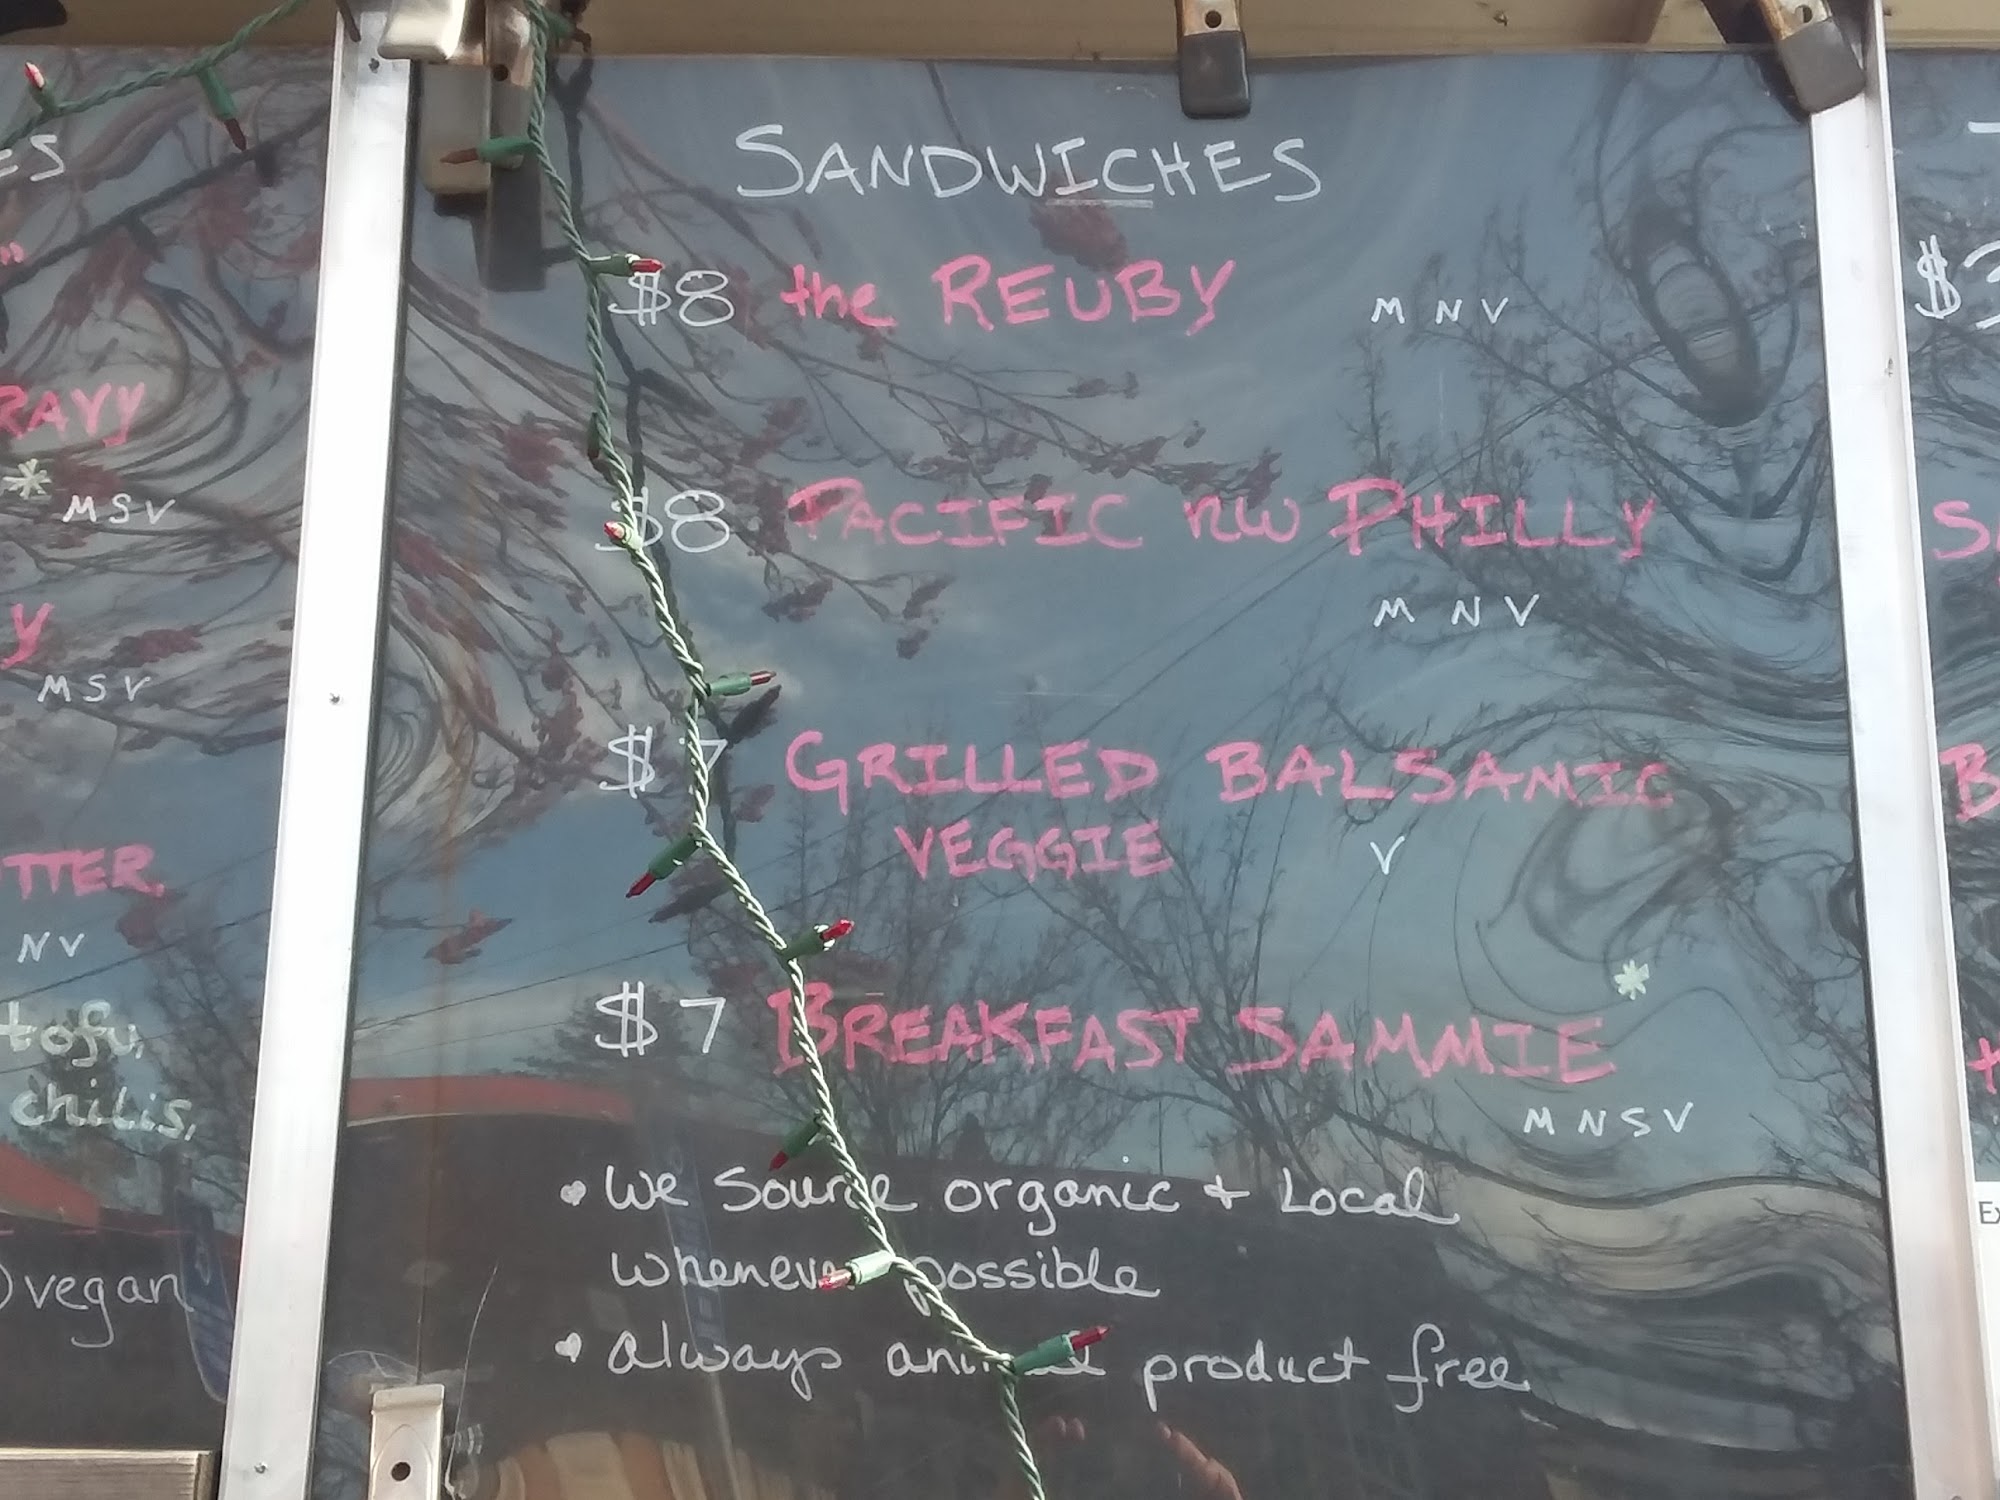 ES
RAVY
MSV
Y
MSV
TTER,
NV
tofu,
chilis,
vegan
SANDWICHES
$8 the REUBY M N V
$8 PACIFIC NW PHILLY
M N V
$7 GRILLED BALSAMIC
VEGGIE V
*
$7 BREAKFAST SAMMIE
M N S V
• We Source organic + Local
whenever possible
• always animal product free
$3
Ex